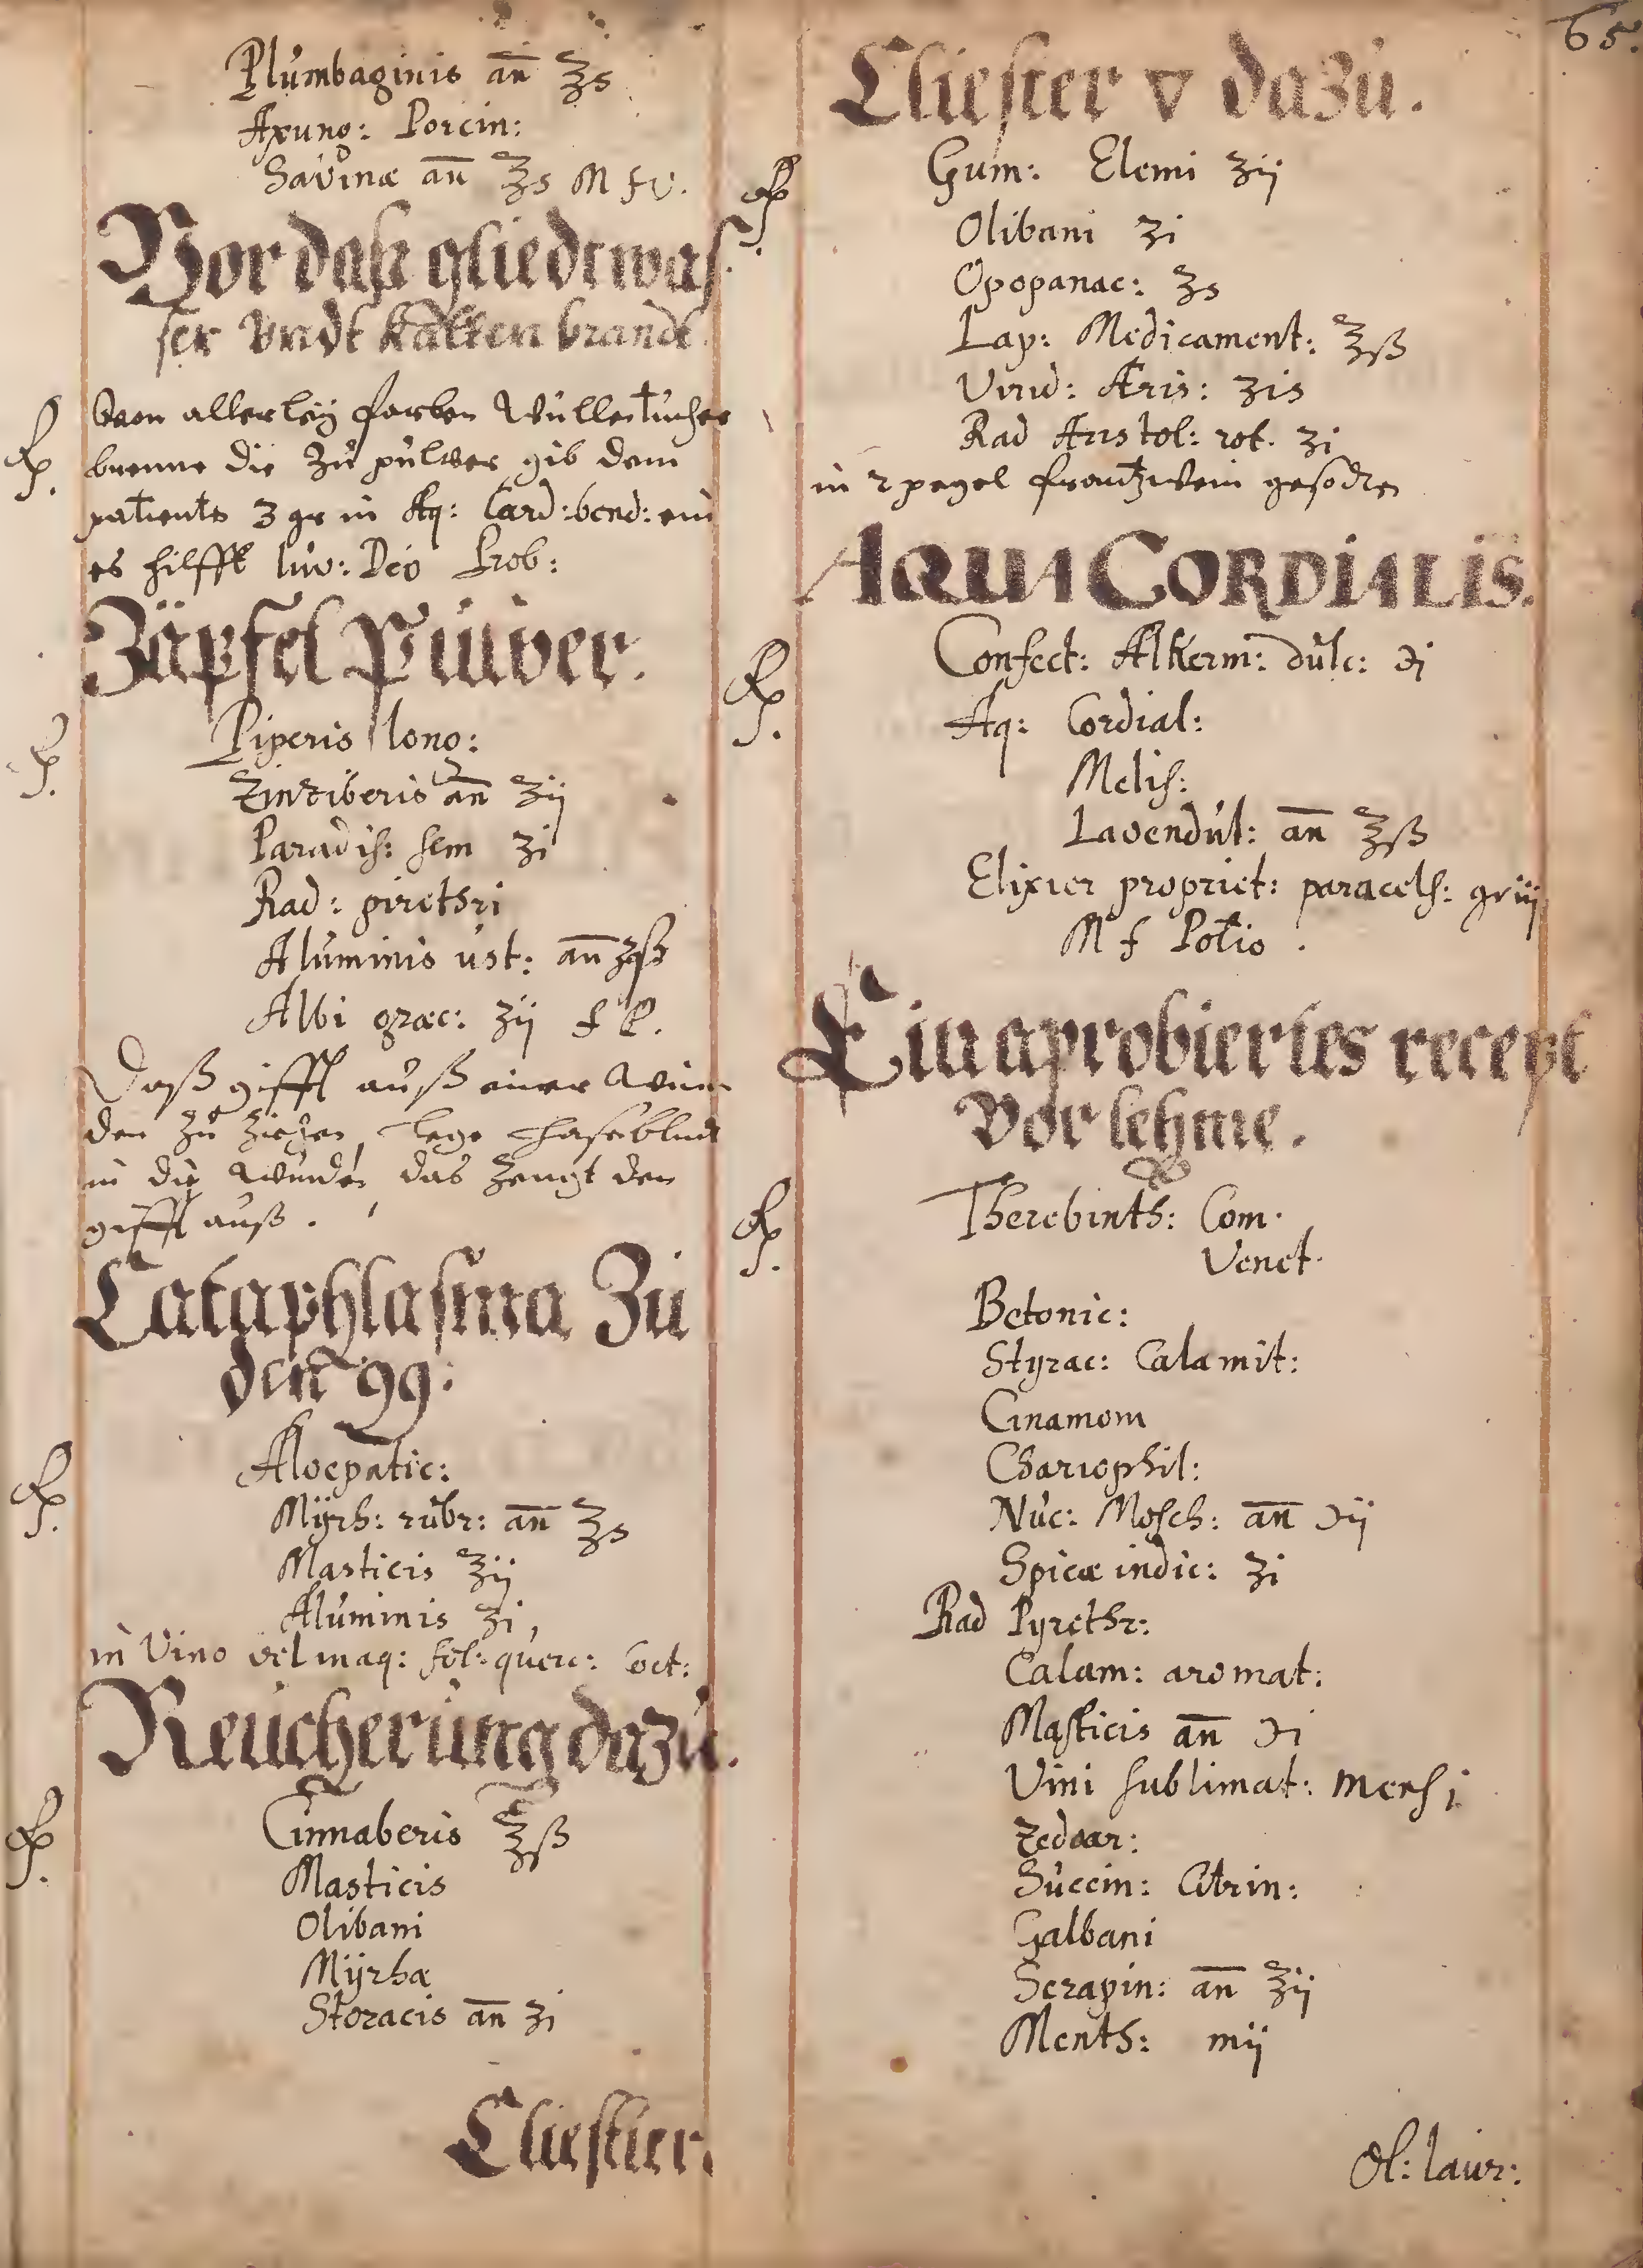 65.
Plumbaginis an ℥s
Axung: Porcin:
Savinæ an ℥s M f V.
Vor daß gliedtwas-
ser Vndt Kalten brandt.
Rp. Nem allerleÿ farben Wullentucher
brenne die Zu pulver gib dem
patiente 3 gr in Aq: Card: bend: ein
es hilfft luv: Deo Prob:
Zäpfel Pulver.
Rp. Piperis long:
Zinziberis an ʒij
Paradis: sem ʒi
Rad: pirethri
Aluminis ust: an ʒß
Albi græc: ʒij f P.
Daß gifft auß einer Wun-
den Zu Ziehen, lege Hasenblut
in die Wunde, das Zeugt den
gifft auß.
Cataphlasma Zu
den 99:
Rp. Aloepatic:
Myrh: rubr: an ℥s
Masticis ʒij
Aluminis ʒi,
in Vino vel in aq: fol: querc: Coct:
Reucherung dazu.
Rp. Cinnaberis ℥ß
Masticis
Olibani
Myrhæ
Storacis an ʒi
Cliestier.
Cliester v dazu.
Rp. Gum: Elemi ʒij
Olibani ʒi
Opopanac: ʒs
Lap: Medicament: ℥ß
Virid: Æris: ʒis
Rad Aristol: rot. ʒi
in 2 pegel frantzwein gesodten
AQUA CORDIALIS.
Rp. Confect: Alkerm: dulc: ℈i
Aq: Cordial:
Melis:
Lavendul: an ℥ß
Elixier propriet: paracels: gr iij
M f Potio.
Ein aprobiertes recept
Vor lehme.
Rp. Therebinth: Com.
Venet.
Betonic:
Styrac: Calamit:
Cinamom
Chariophil:
Nuc: Mosch: an ℈ij
Spicæ indic: ʒi
Rad Pyrethr:
Calam: aromat:
Masticis an ℈i
Vini sublimat: mens i
Zedoar:
Succin: Citrin:
Galbani
Serapin: an ʒij
Menth: mij
Ol: laur: